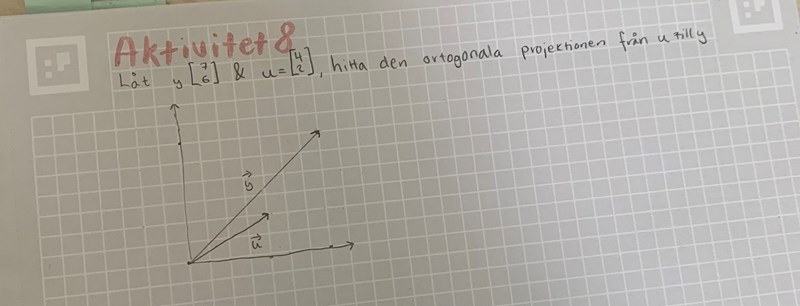 Aktivitet 8
Låt y [7 6] & u = [4 2], hitta den ortogonala projektionen från u till y
y
u